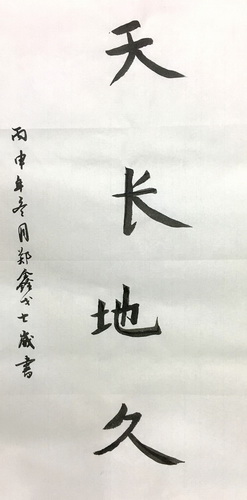 天长地久
丙申年冬月郑鑫八七岁书